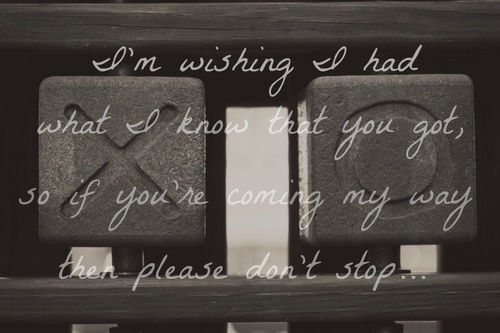 I'm wishing I had
what I know that you got,
so if you're coming my way
then please don't stop...